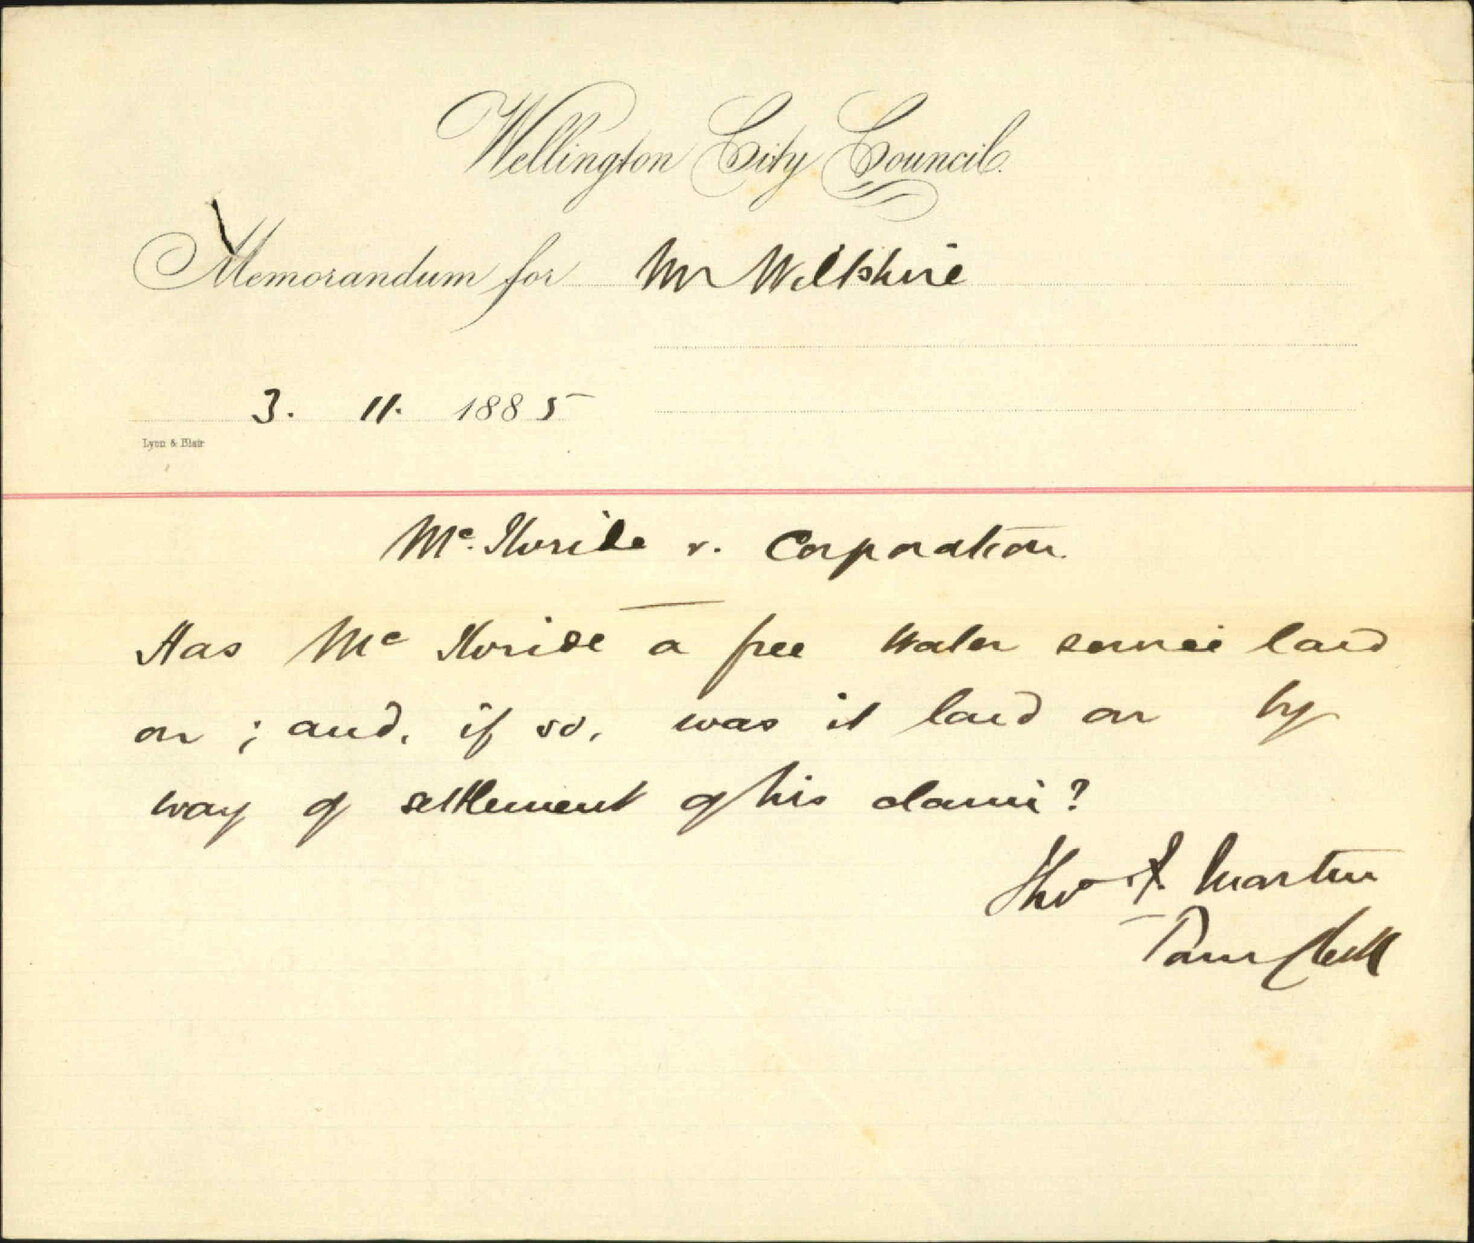 Wellington City Council.
Memorandum for Mr Wiltshire
3. 11. 1885
Lyon & Blair
Mc. Ilvride v. Corporation.
Has Mc Ilvride a free water service laid
on ; and, if so, was it laid on by
way of settlement of his claim?
Tho F. Martin
Town Clerk